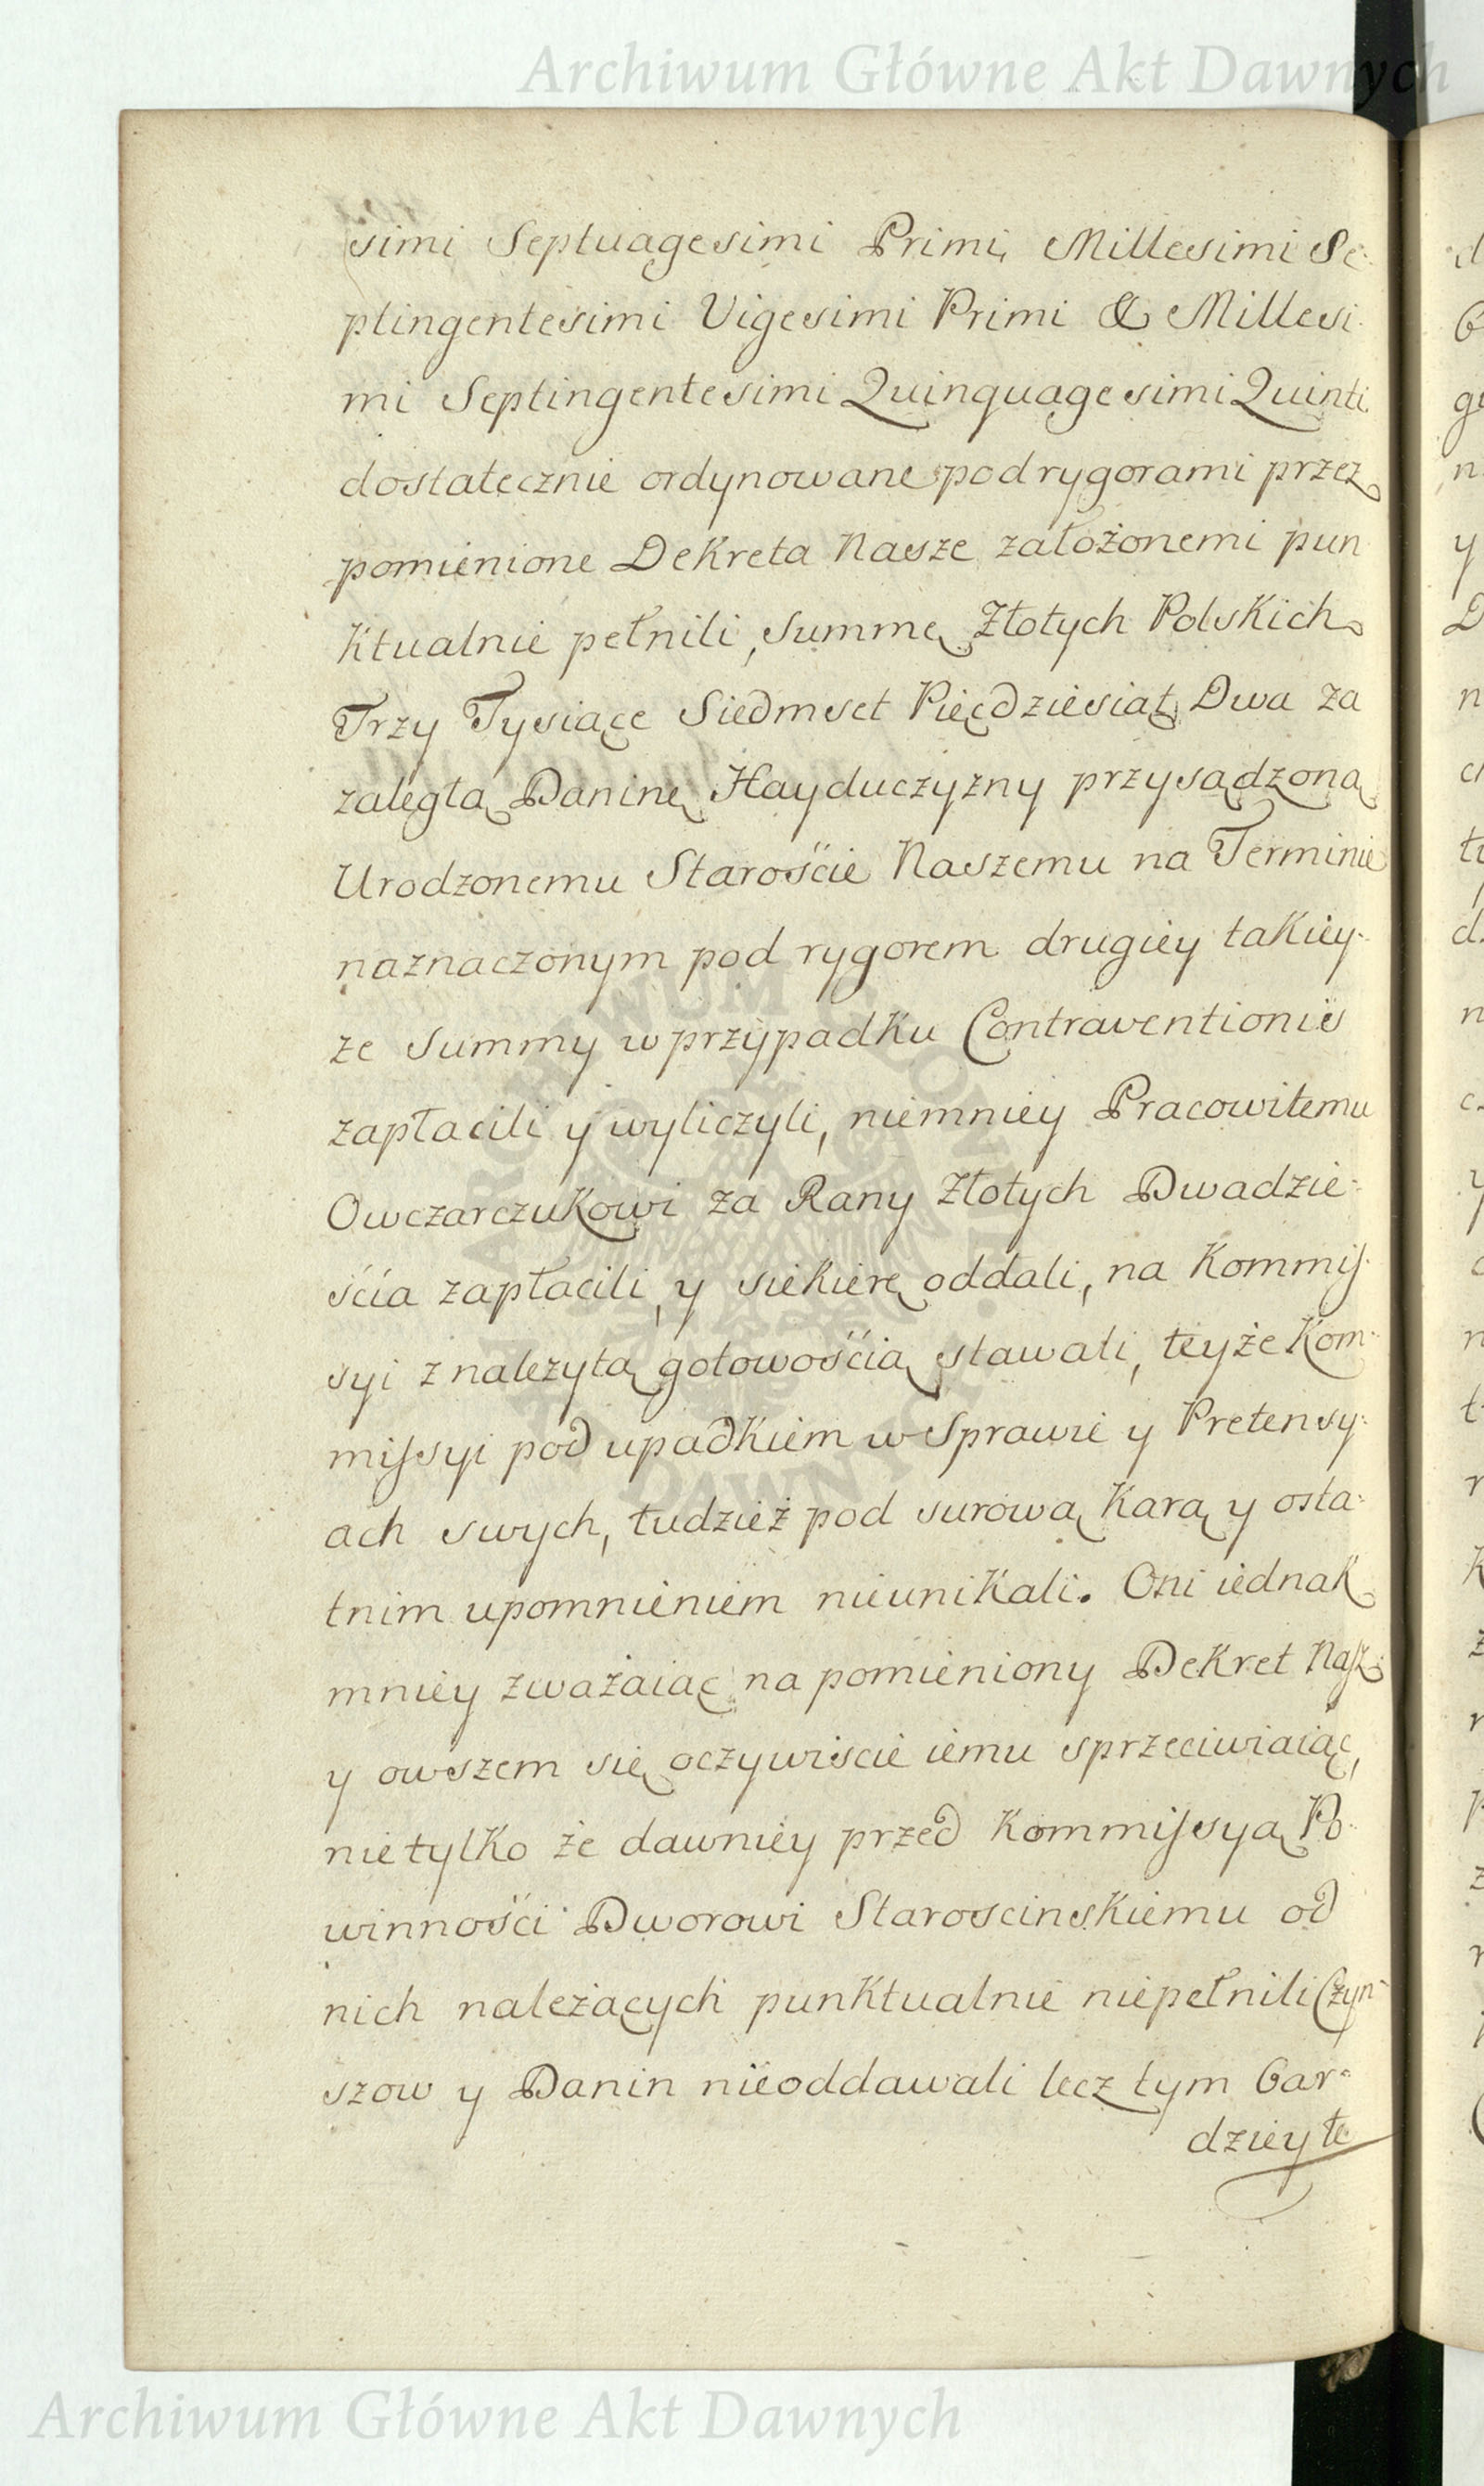 Archiwum Główne Akt Dawnych
simi Septuagesimi Primi, Millesimi Se-
ptingentesimi Vigesimi Primi & Millesi-
mi Septingentesimi Quinquagesimi Quinti
dostatecznie ordynowane pod rygorami przez
pomienione Dekreta Nasze założonemi pun
ktualnie pełnili, Summę Złotych Polskich
Trzy Tysiące Siedmset Pięcdziesiąt Dwa za
zaległą Daninę Hayduczyzny przysądzoną
Urodzonemu Starościе Naszemu na Terminie
naznaczonym pod rygorem drugiey takiey-
że Summy w przypadku Contraventionis
zapłacili y wyliczyli, niemniey Pracowitemu
Owczarczukowi za Rany Złotych Dwadzie-
ścia zapłacili, y siekierę oddali, na Kommis-
syi z należytą gotowością stawali, teyże Kom-
missyi pod upadkiem w Sprawie y Pretensy-
ach swych, tudzież pod surową Karą y osta-
tnim upomnieniem nieunikali. Oni iednak
mniey zważaiąc na pomieniony Dekret Nasz
y owszem się oczywiscie iemu sprzeciwiaiąc,
nie tylko że dawniey przed Kommissyą Po-
winności Dworowi Staroscinskiemu od
nich należących punktualnie niepełnili Czyn-
szow y Danin nieoddawali lecz tym bar-
dziey te
Archiwum Główne Akt Dawnych